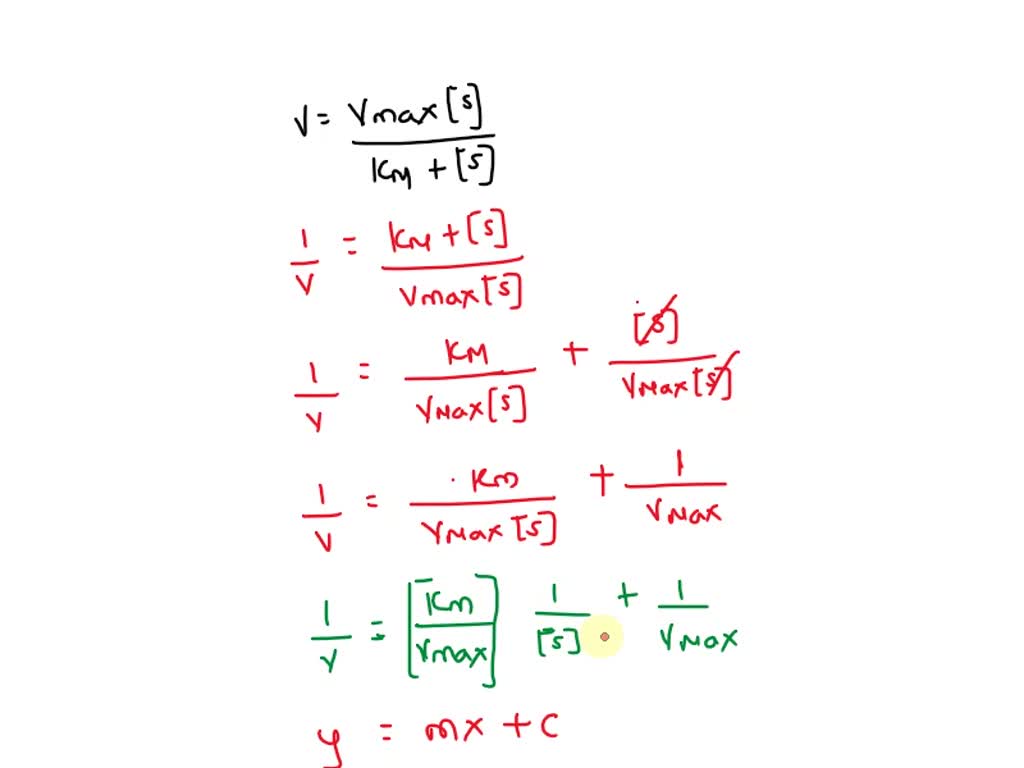 V = Vmax[S] / KM + [S]
1/V = KM + [S] / Vmax[S]
1/V = KM / VMax[S] + [S] / VMax[S]
1/V = Km / VMax[S] + 1 / VMax
1/V = [Km / Vmax] 1/[S] + 1 / VMax
y = mx + c